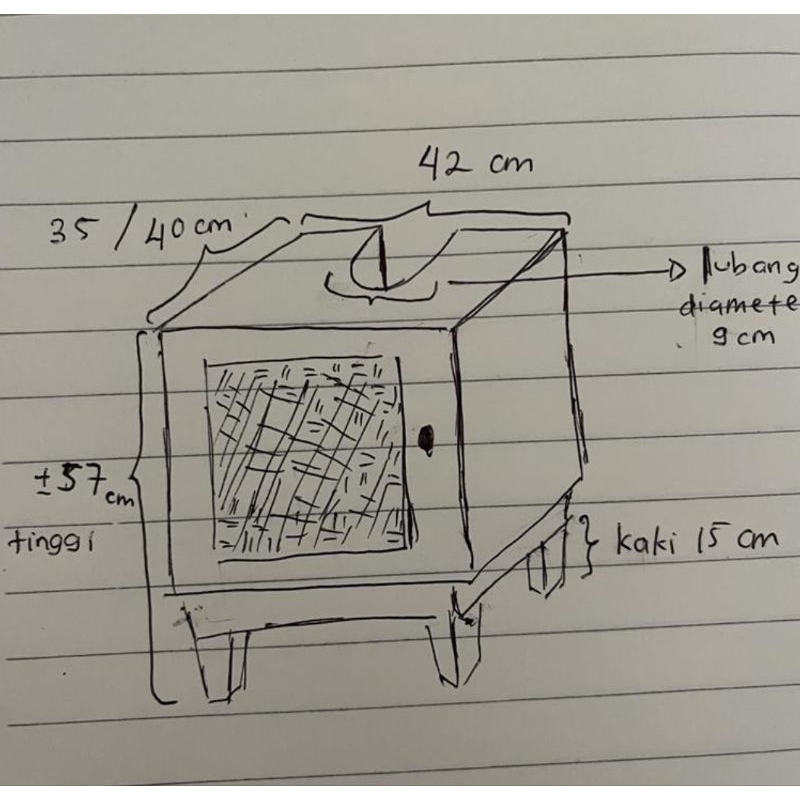 42 cm
35 / 40 cm
lubang
diamete
9 cm
± 57 cm
tinggi
kaki 15 cm